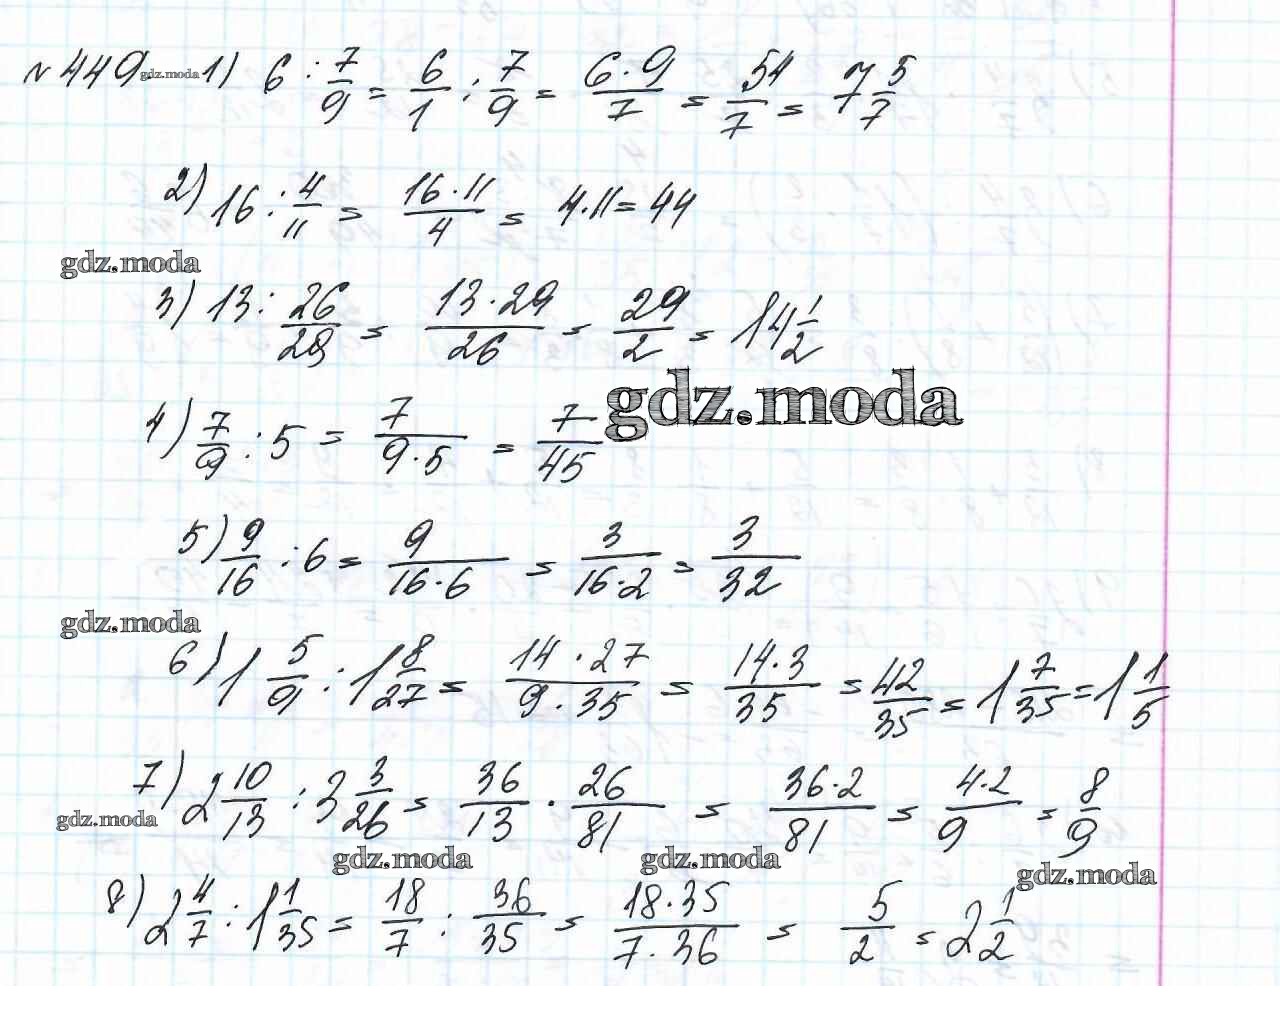 № 449. gdz.moda 1) 6 : 7/9 = 6/1 : 7/9 = 6·9/7 = 54/7 = 7 5/7
2) 16 : 4/11 = 16·11/4 = 4·11 = 44
gdz.moda
3) 13 : 26/29 = 13·29/26 = 29/2 = 14 1/2
gdz.moda
4) 7/9 : 5 = 7/9·5 = 7/45
5) 9/16 : 6 = 9/16·6 = 3/16·2 = 3/32
gdz.moda
6) 1 5/9 : 1 8/27 = 14·27/9·35 = 14·3/35 = 42/35 = 1 7/35 = 1 1/5
7) 2 10/13 : 3 3/26 = 36/13 · 26/81 = 36·2/81 = 4·2/9 = 8/9
gdz.moda
gdz.moda gdz.moda gdz.moda
8) 2 4/7 : 1 1/35 = 18/7 : 36/35 = 18·35/7·36 = 5/2 = 2 1/2